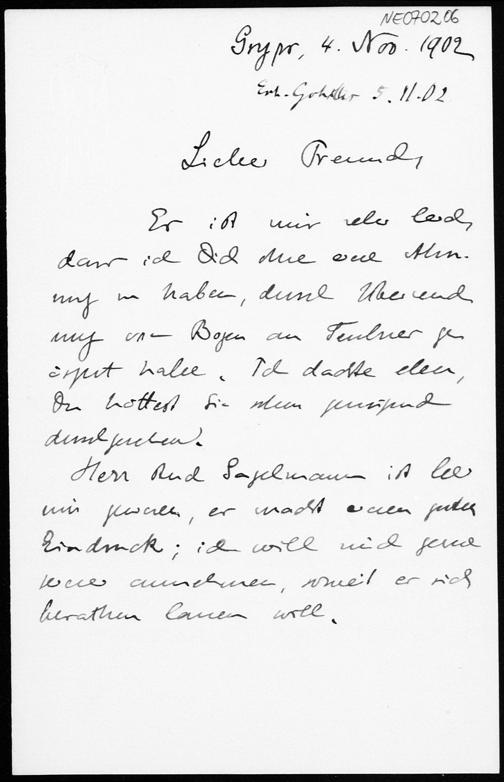 NE070206
Gryps, 4. Nov. 1902
Erh. 5.11.02
Lieber Freund,
Es ist mir sehr leid,
dass ich Dich ohne eine Ahn-
ung zu haben, durch Übersend
ung von Bogen an Teubner ge
ärgert habe. Ich dachte eben,
Du hättest sie schon genügend
durchgesehen.
Herr stud Sagelmann ist bei
mir gewesen, er macht einen guten
Eindruck; ich will mich gerne
seiner annehmen, soweit er sich
berathen lassen will.